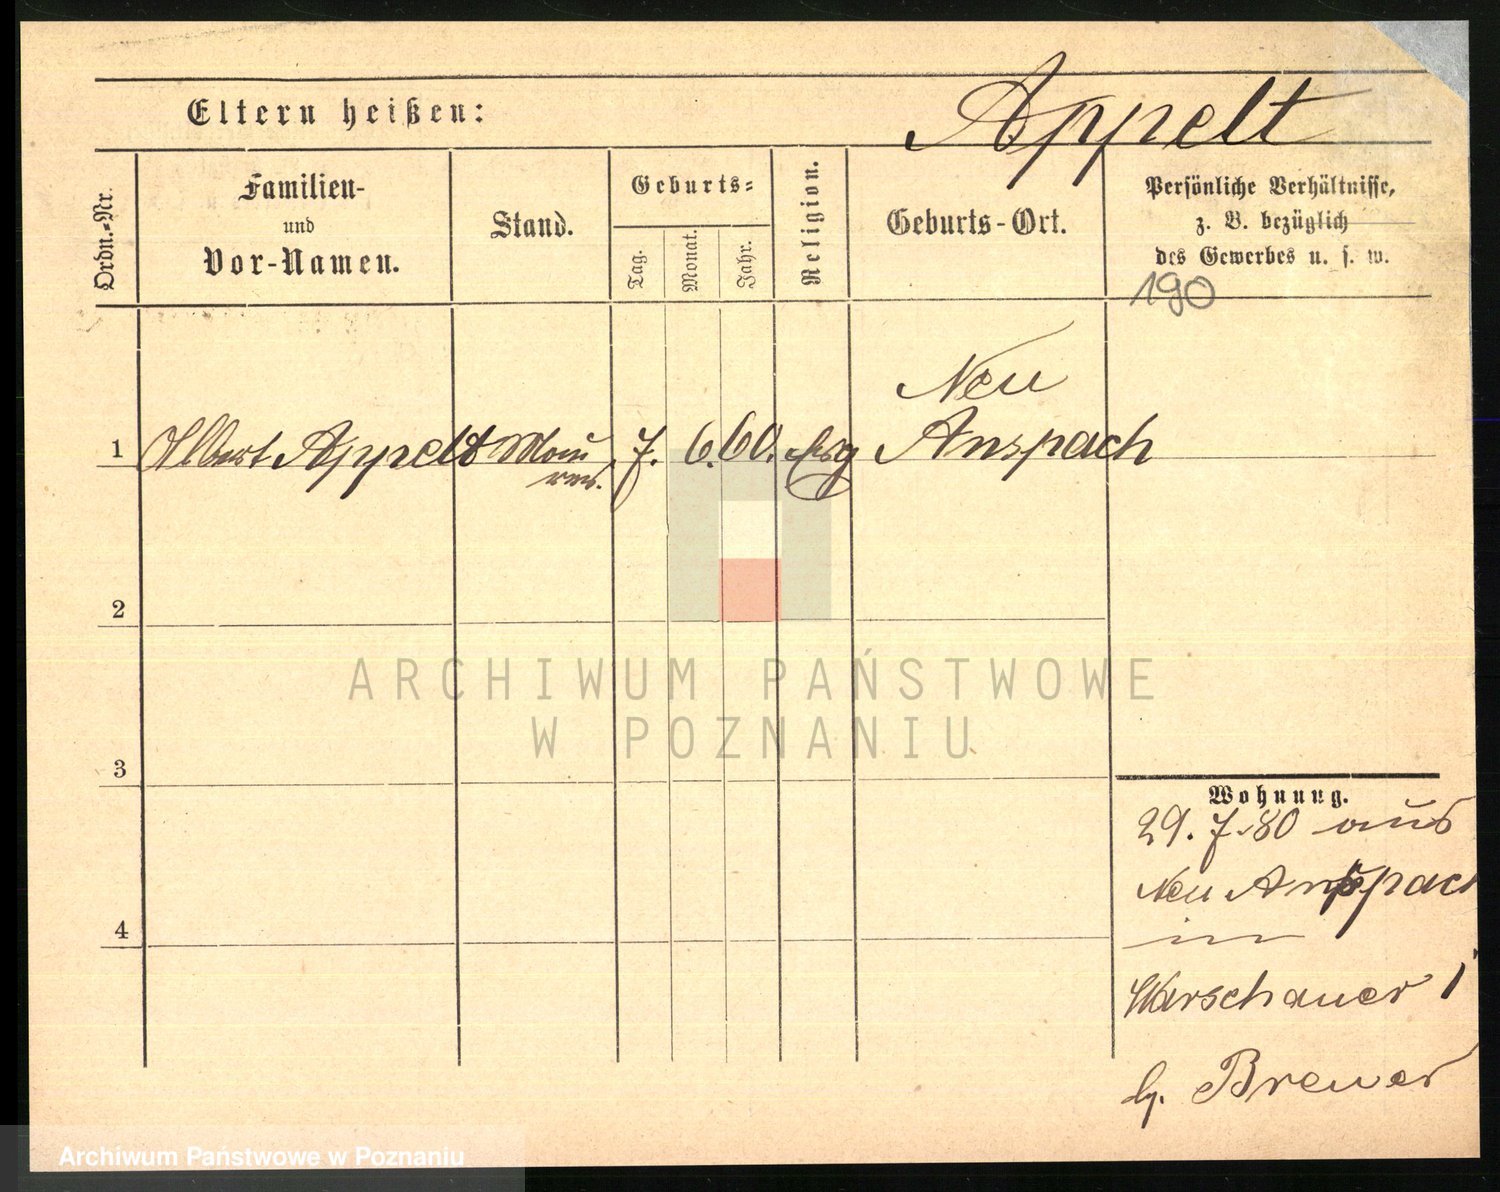 Eltern heißen:
Appelt
Ordn.-Nr.
Familien-
und
Vor-Namen.
Stand.
Geburts-
Tag.
Monat.
Jahr.
Religion.
Geburts-Ort.
Persönliche Verhältnisse,
z. B. bezüglich
des Gewerbes u. s. w.
190
Neu
1 Albert Appelt Mau 7. 6. 60. Anspach
rer.
2
ARCHIWUM PAŃSTWOWE
W POZNANIU
3
Wohnung.
29. 7. 80 aus
Neu Anspach
in
4
Warschauer 1
Brewer
Archiwum Państwowe w Poznaniu